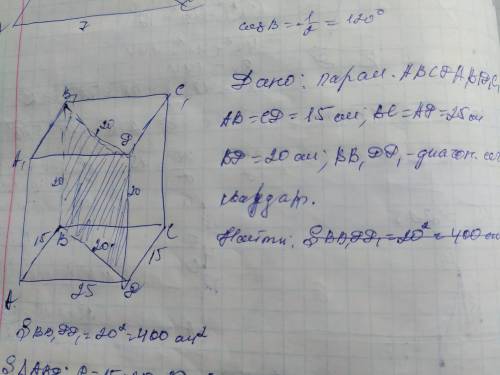 7
cos B = -1/2 = 120°
Дано: парал. ABCDA₁B₁D₁C₁
AB=CD=15 см; BC=AD=25 см
BD=20 см; BB₁DD₁-диагон. се
квадрат.
Найти: S BB₁DD₁=20²=400 см
B₁
C₁
20
D
A₁
20
20
15
B
20
C
15
A
25
D
S BB₁DD₁=20²=400 см²